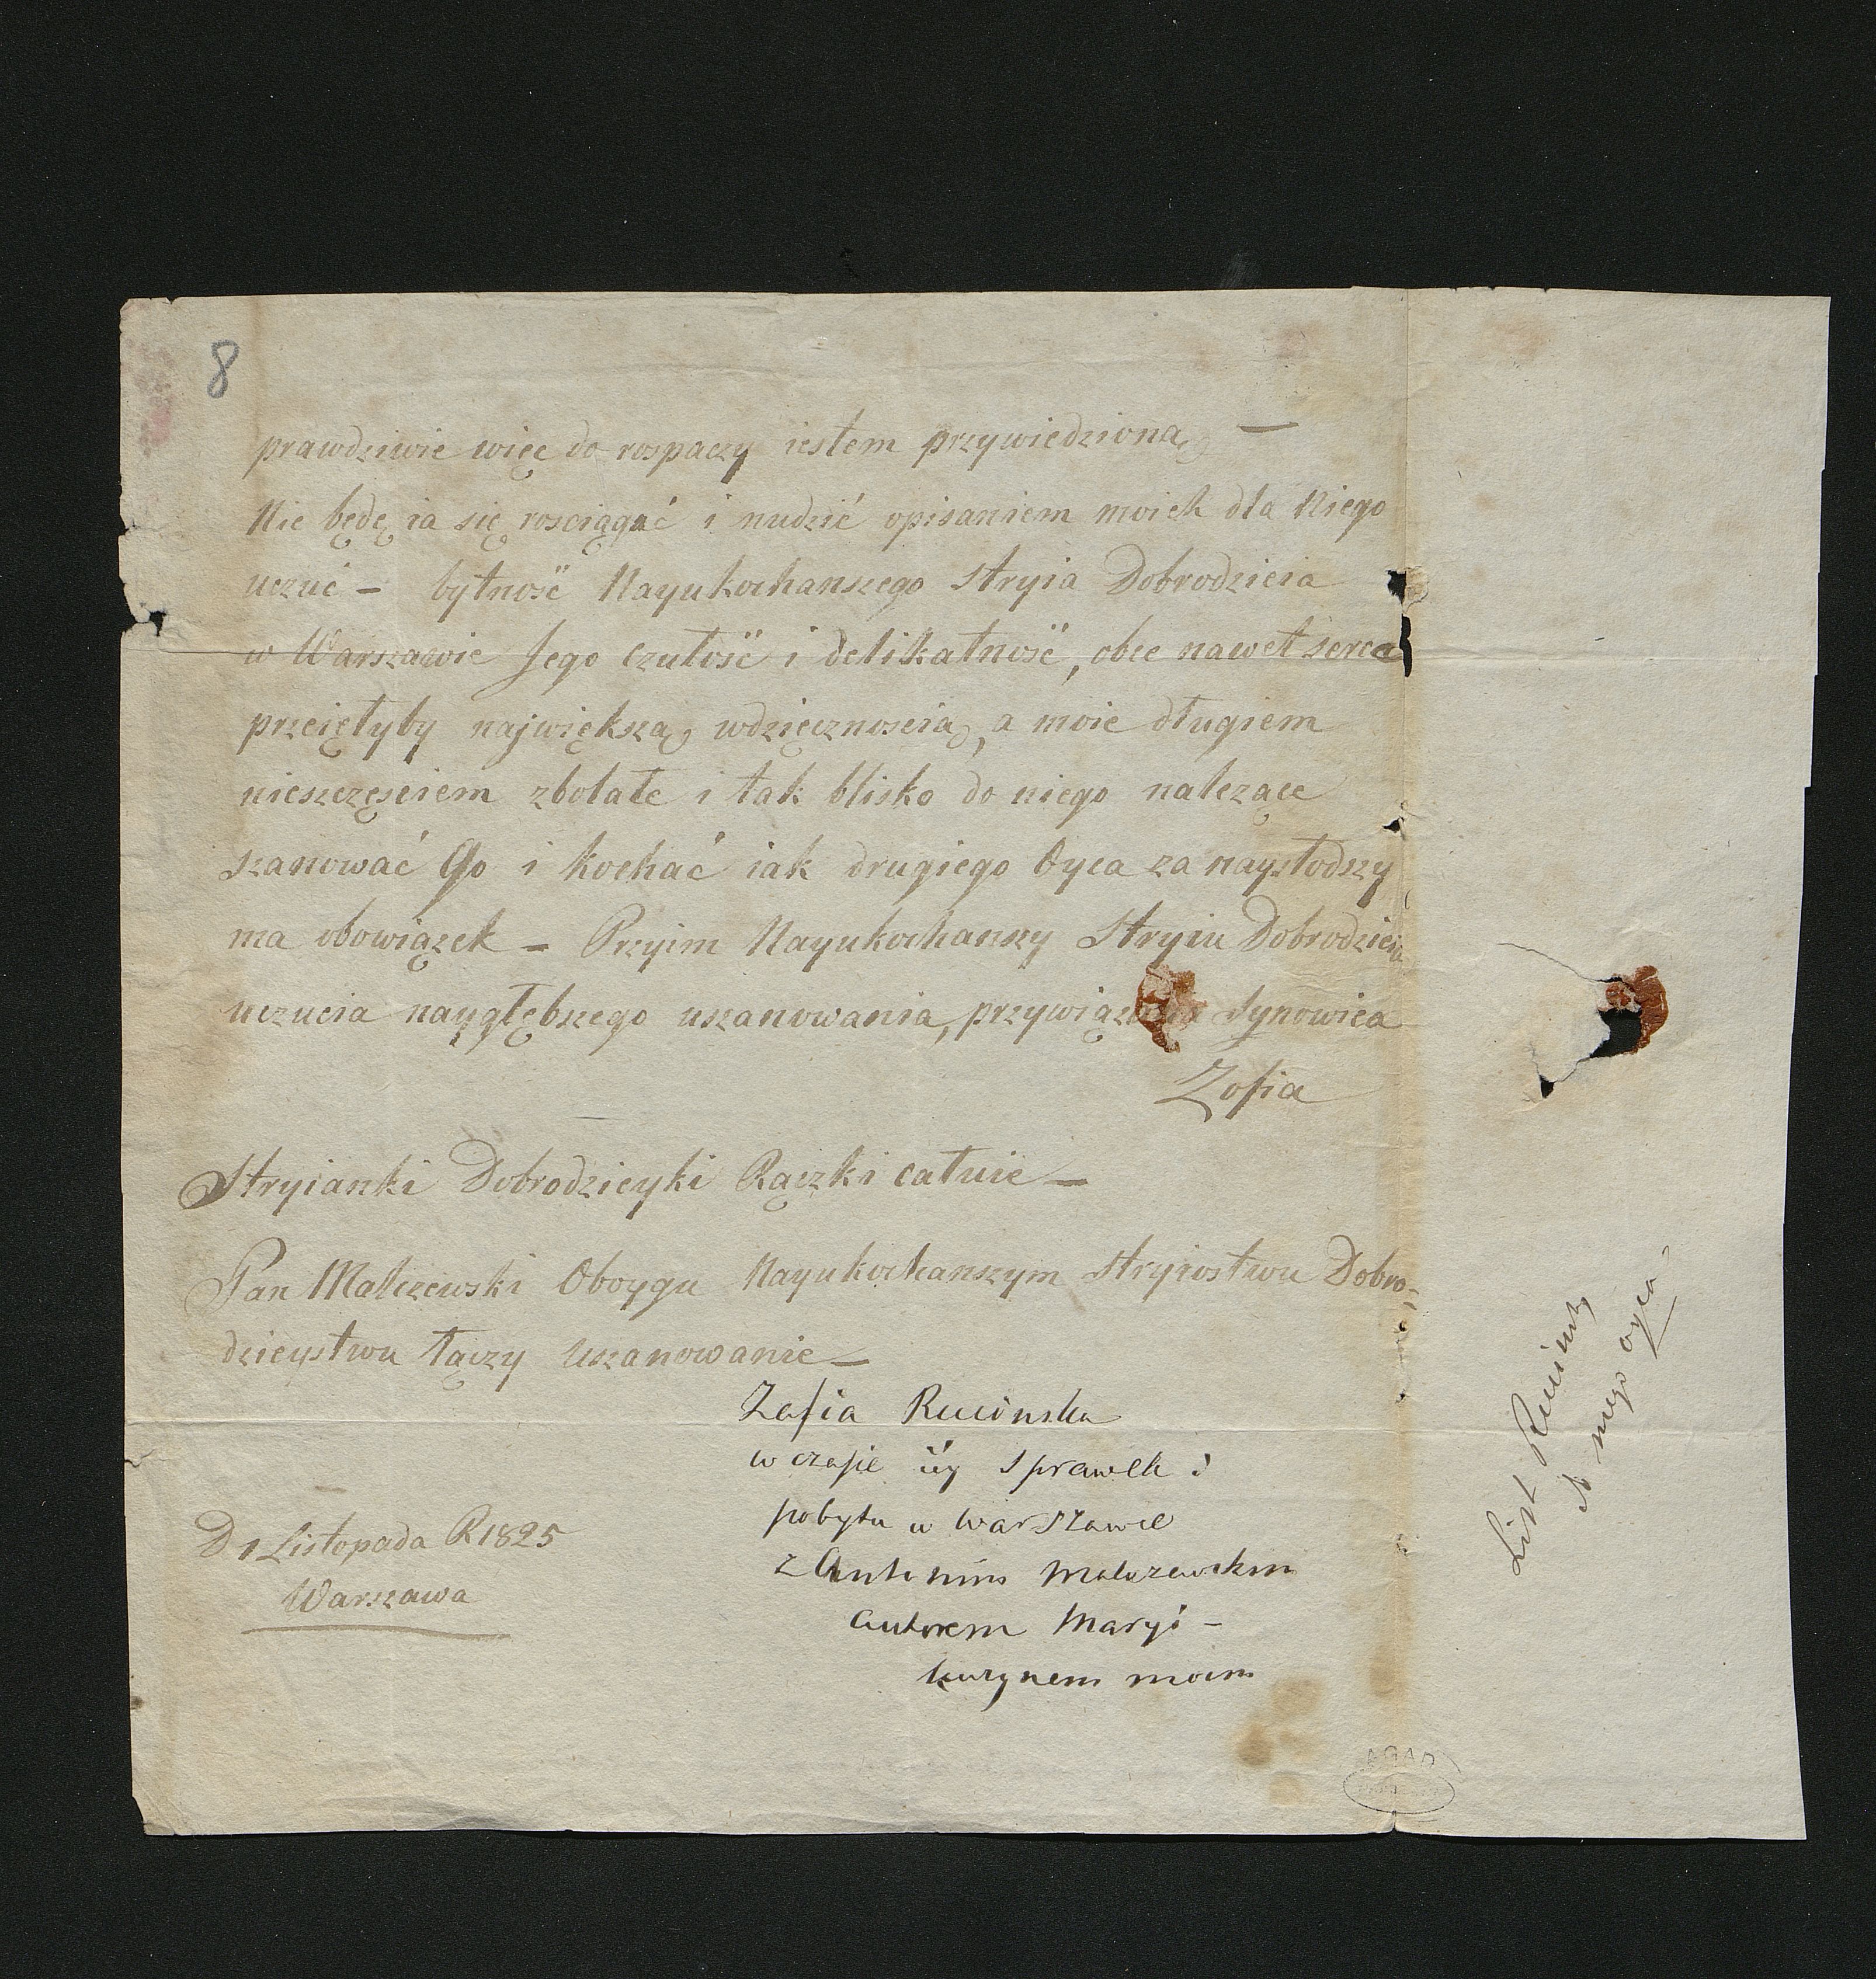 8
prawdziwie więc do rospaczy iestem przywiedziona —
Nie będę ia się rosciągać i nudzić opisaniem moich dla Niego
uczuć – bytność Nayukochanszego Stryia Dobrodzieia
w Warszawie Jego czułość i delikatność, obce nawet serca
przeięłyby największą wdzięcznoscią, a moie długiem
nieszczęsciem zbolałe i tak blisko do niego nalezące
szanować Go i kochać iak drugiego Oyca za naysłodszy
ma obowiązek – Przyim Nayukochanszy Stryiu Dobrodzieiu
uczucia naygłębszego uszanowania, Synowica
Zofia
Stryianki Dobrodzieyki Rączki całuie –
Pan Malczewski Oboygu Nayukochanszym Stryiostwu Dobro-
dzieystwu łączy Uszanowanie –
Zofia Rucinska
w czasie iéy sprawek i
pobytu w Warszawie
z Antonim Malczewskim
autorem Maryi –
kuzynem moim
D 1 Listopada R 1825
Warszawa
List Rucinsky
do mego oyca
AGAD